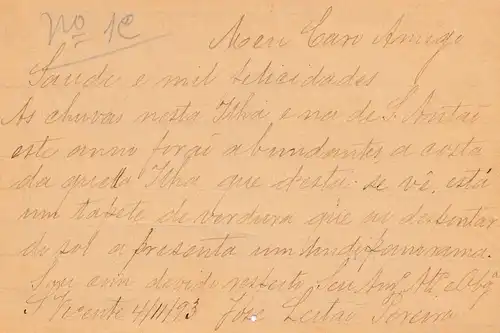 Nº 1e
Meu Caro Amigo
Saude e mil felicidades
As chuvas nesta Ilha e na de S. Antaõ
este anno foraõ abundantes a costa
da quella Ilha que desta se vê, está
um tapete de verdura que ao despontar
do sol apresenta um lindo panorama.
Sou com devido respeito Seu Amgº Attº e Obgº
S Vicente 4/11/93 José Leitaõ Pereira